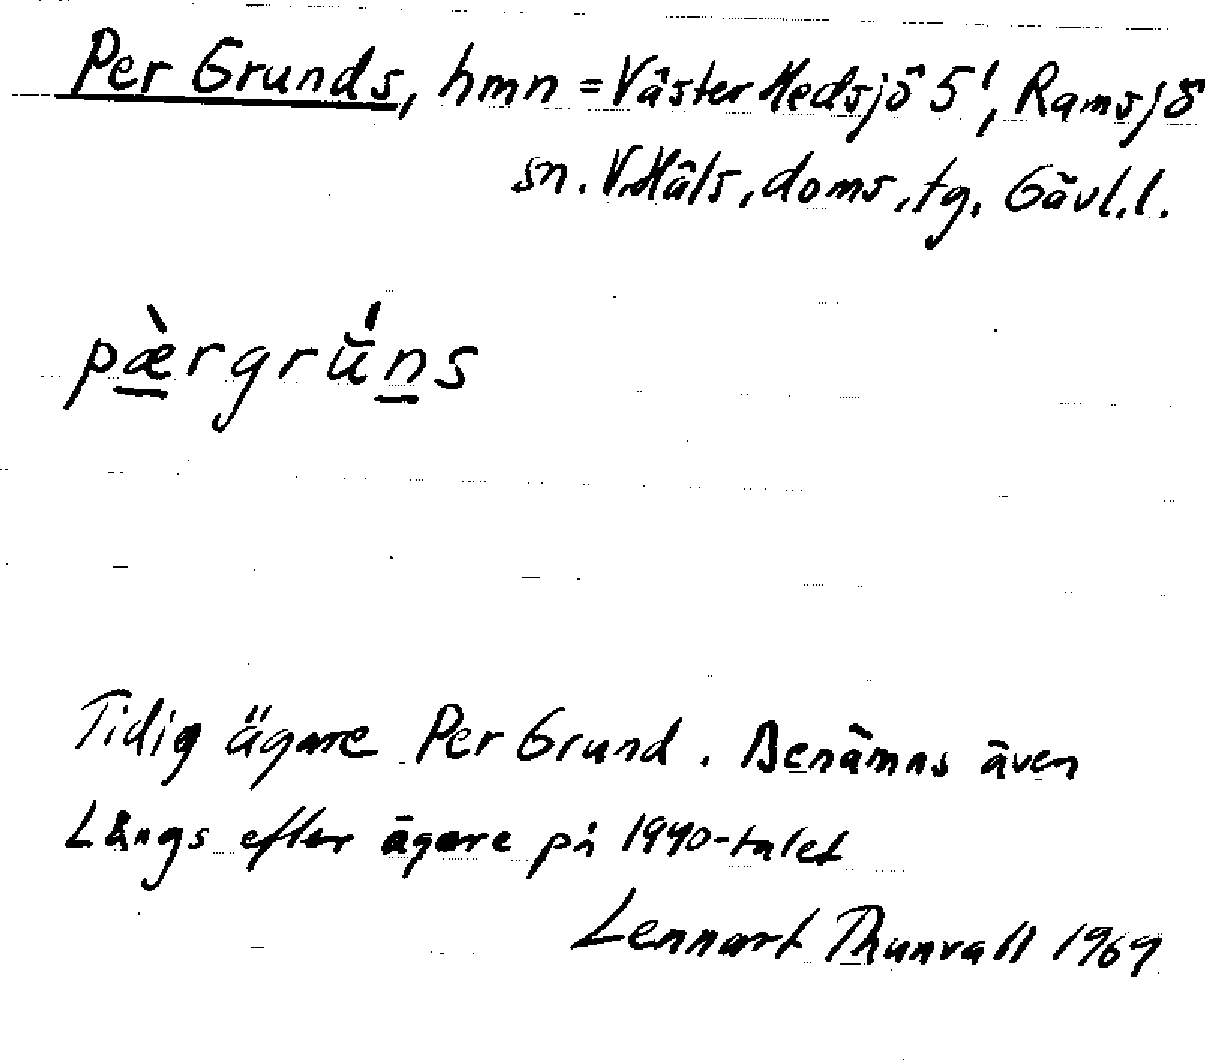 Per Grunds, hmn = Väster Hedsjö 5¹, Ramsjö
sn. V. Häls. doms. tg. Gävl. l.
pæ̀rgrŭ́ns
Tidig ägare Per Grund. Benämns även
Långs efter ägare på 1940-talet
Lennart Thunvall 1969